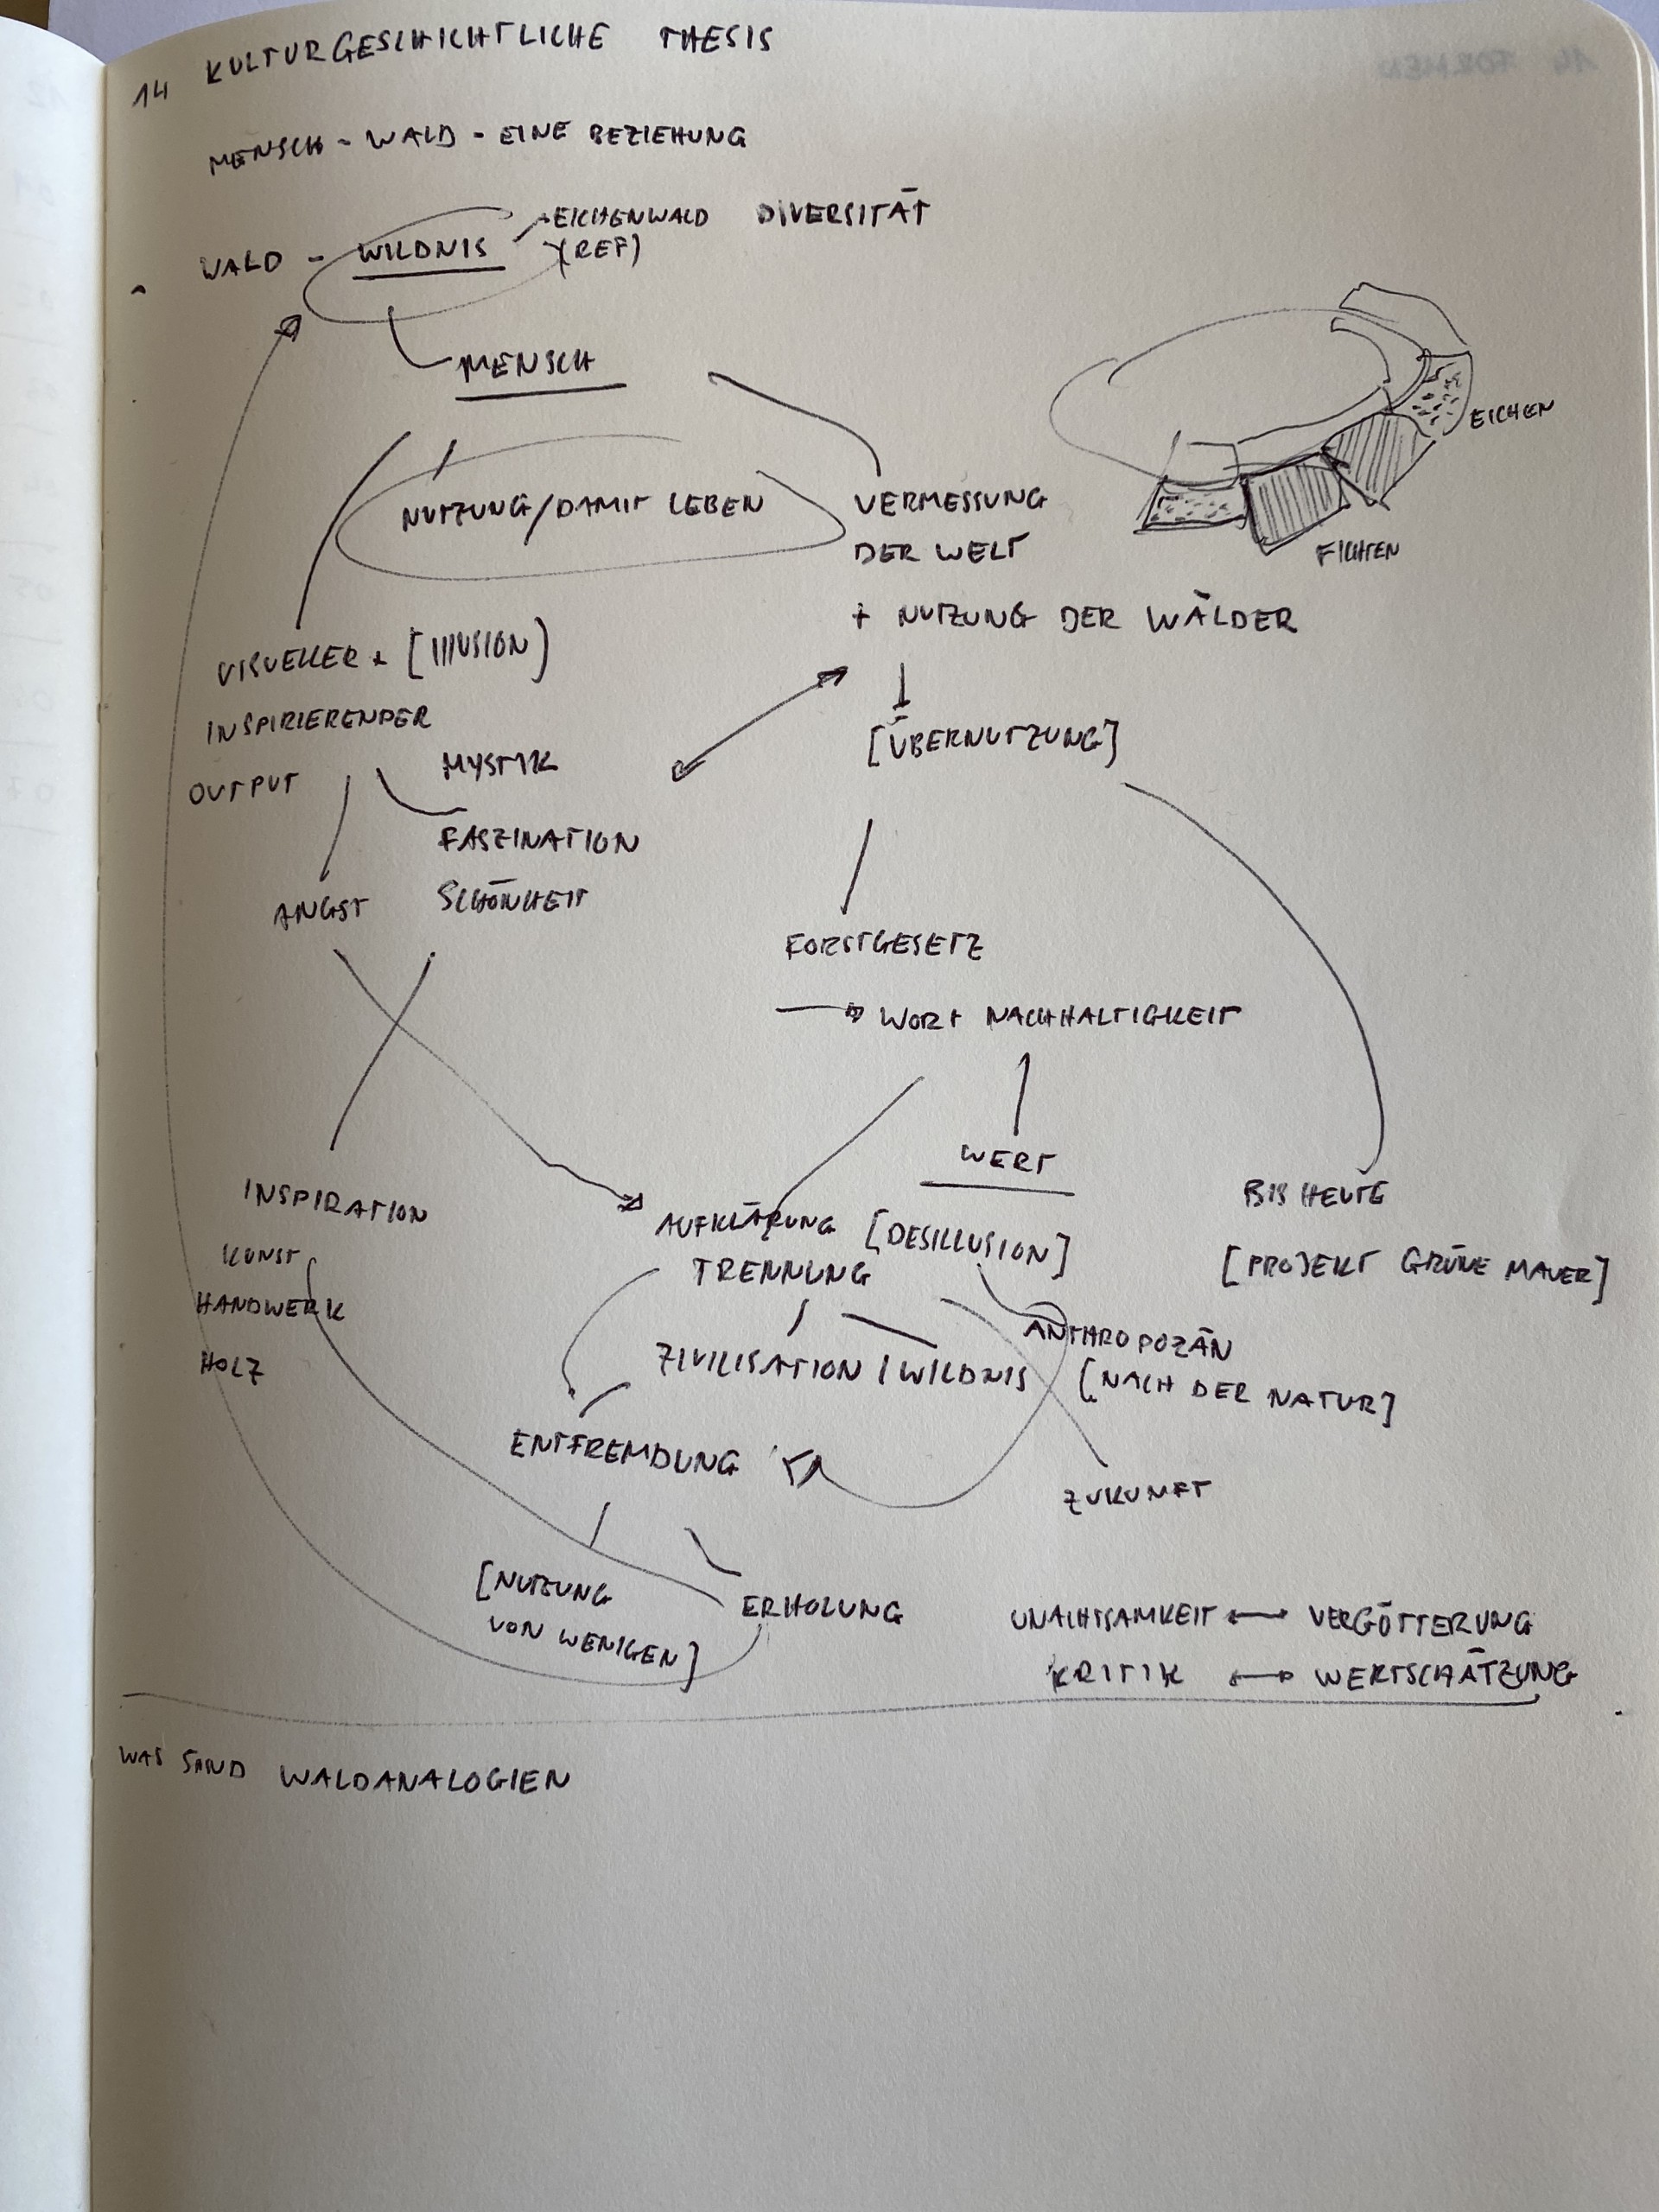 14 KULTURGESCHICHTLICHE THESIS
MENSCH - WALD - EINE BEZIEHUNG
WALD - WILDNIS EICHENWALD DIVERSITÄT
(REF)
MENSCH
EICHEN
FICHTEN
NUTZUNG/DAMIT LEBEN
VERMESSUNG
DER WELT
+ NUTZUNG DER WÄLDER
[ÜBERNUTZUNG]
VISUELLER + [ILLUSION]
INSPIRIERENDER
OUTPUT
MYSTIK
FASZINATION
SCHÖNHEIT
ANGST
FORSTGESETZ
WORT NACHHALTIGKEIT
WERT
INSPIRATION
KUNST
HANDWERK
HOLZ
AUFKLÄRUNG [DESILLUSION]
TRENNUNG
BIS HEUTE
[PROJEKT GRÜNE MAUER]
ZIVILISATION / WILDNIS
ANTHROPOZÄN
[NACH DER NATUR]
ENTFREMDUNG
ZUKUNFT
[NUTZUNG
VON WENIGEN]
ERHOLUNG
UNACHTSAMKEIT ↔ VERGÖTTERUNG
KRITIK ↔ WERTSCHÄTZUNG
WAS SIND WALDANALOGIEN